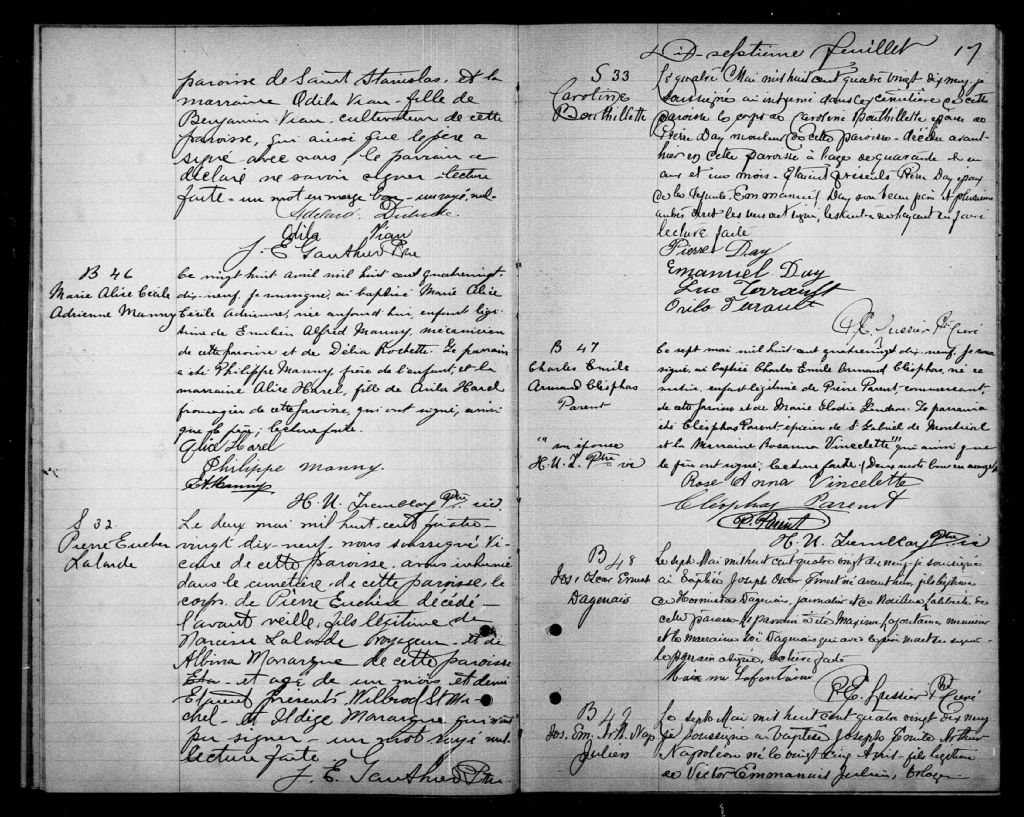 paroisse de Saint Stanislas. et la
marraine Odila Viau - fille de
Benjamin Viau - cultivateur de cette
paroisse, qui ainsi que le père a
signé avec nous, le parrain a
déclaré ne savoir signer - lecture
faite - un mot en marge bon - un rayé, nul -
Odila Viau
J. E. Gauthier Ptre
B 46
Marie Alice Cécile
Adrienne Manny
Ce vingt huit avril mil huit cent quatrevingt
dix-neuf, je soussigné, ai baptisé Marie Alice
Cécile Adrienne, née aujourd'hui, enfant légi-
time de Emilien Alfred Manny, mécanicien
de cette paroisse et de Délia Rochette. Le parrain
a été Philippe Manny, frère de l'enfant, et la
marraine Alice Harel, fille de Harel
fromager de cette paroisse, qui ont signé, ainsi
que le père; lecture faite.
Alice Harel
Philippe Manny.
E A Manny
H. U. Tremblay Ptre vic.
S 32
Pierre Eucher
Lalonde
Le deux mai mil huit cent quatre-
vingt dix-neuf, nous soussigné Vi-
caire de cette paroisse, avons inhumé
dans le cimetière de cette paroisse le
corps de Pierre Euchère décédé -
l'avant veille, fils légitime de
Narcisse Lalonde voyageur - et de
Albina de cette paroisse
et agé de un mois et demi
Etaient présents Wilbrod St Mi-
chel - et qui n'ont
pu signer - un mot rayé nul
lecture faite
J. E. Gauthier Ptre.
Dix-septieme feuillet 17
S 33
Caroline
Bouthillette
Le quatre Mai mil huit cent quatre vingt dix neuf je
soussigné ai inhumé dans le cimetière de cette
paroisse le corps de Caroline Bouthillette épouse de
Pierre Day mouleur de cette paroisse - décédée avant
hier en cette paroisse à l'age de quarante et un
ans et un mois - Etaient présents Pierre Day epoux
de la défunte, Emmanuel Day son beau père et plusieurs
autres dont les uns ont signé, les autres ne sachant le faire
lecture faite
Pierre Day
Emanuel Day
Luc
P. E. Lussier Ptre Curé
B 47
Charles Emile
Armand Cléophas
Parent
H. U. T. Ptre vic
Ce sept mai mil huit cent quatrevingt dix-neuf, je sous-
signé, ai baptisé Charles Emile Armand Cléophas, né ce
enfant légitime de Pierre Parent, commerçant,
de cette paroisse et de Marie Elodie Gendron. Le parrain a
été Cléophas Parent épicier de St Gabriel de Montréal
et la Marraine Rosanna Vincelette qui ainsi que
le père ont signé; lecture faite. (Deux mots bons en marge)
Rose Anna Vincelette
Cléophas Parent
P. Parent
H. U. Tremblay Ptre vic
B 48
Jos. Oscar Ernest
Dagenais
Le sept Mai mil huit cent quatre vingt dix neuf je soussigné
ai baptisé Joseph Oscar Ernest né avant hier, fils légitime
de Dagenais, journalier et de
cette paroisse - Le parrain a été Maxime Lafontaine, menuisier
et la marraine Dagenais qui avec le père n'ont su signer
le parrain a signé, lecture faite
Maxime Lafontaine
P. E. Lussier Ptre Curé
B 49
Jos. Em. Arth. Nap
Julien
Le sept Mai mil huit cent quatre vingt dix neuf
je soussigné ai baptisé Joseph Emile Arthur
Napoléon né le vingt cinq Avril - fils légitime
de Victor Emmanuel Julien,